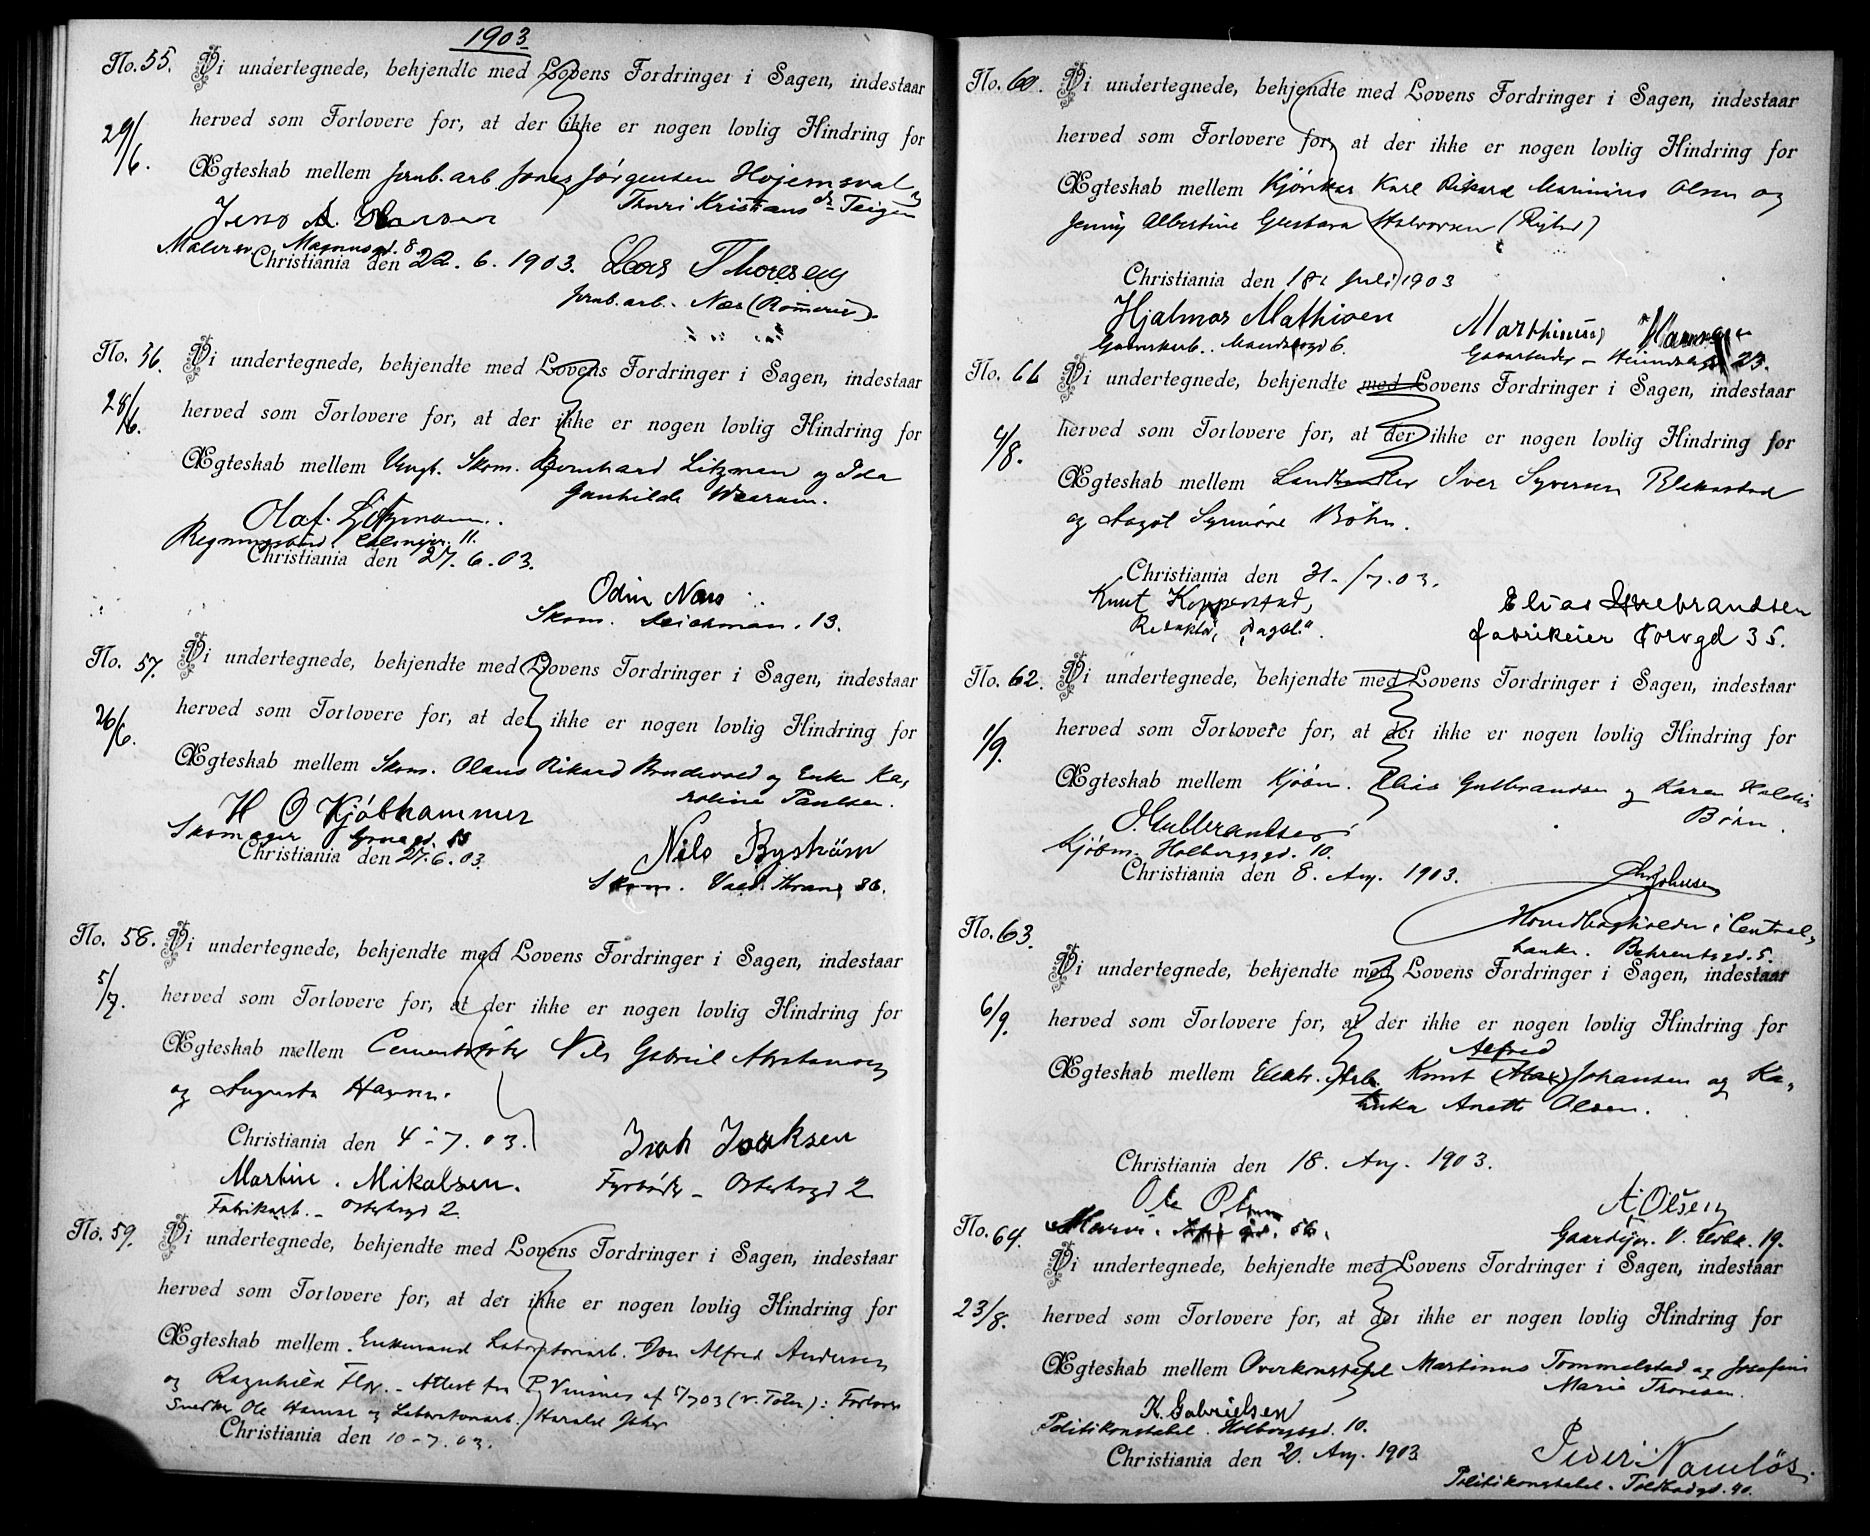 1903
No. 55. Vi undertegnede, bekjendte med Lovens Fordringer i Sagen, indestaar
29/6. herved som Forlovere for, at der ikke er nogen lovlig Hindring for
Ægteskab mellem Jernb. arb Jørgensen Hojemsval og
Thuri Kristiansdr Teigen
Jens A.
Maler Magnusgd. 8
Christiania den 22. 6. 1903. Lars Thoresen
Jernb. arb. Næs (Romerike).
No. 56. Vi undertegnede, bekjendte med Lovens Fordringer i Sagen, indestaar
28/6. herved som Forlovere for, at der ikke er nogen lovlig Hindring for
Ægteskab mellem Ungk. Skom. Bernhard Litzman og Ida
Gunhilde
Olaf Litzmann.
11.
Christiania den 27. 6. 03.
Odin
Skom. 13.
No. 57. Vi undertegnede, bekjendte med Lovens Fordringer i Sagen, indestaar
26/6. herved som Forlovere for, at der ikke er nogen lovlig Hindring for
Ægteskab mellem Skom. Olaus Rikard og Enke Ka-
roline Paulsen.
H O Kjölhammer
Skomager
Christiania den 27. 6. 03. Nils Byström
Skom. 86.
No. 58. Vi undertegnede, bekjendte med Lovens Fordringer i Sagen, indestaar
5/7. herved som Forlovere for, at der ikke er nogen lovlig Hindring for
Ægteskab mellem Cementstøber Nils Gabriel Abrahamsen
og Augusta Hansen.
Christiania den 4 - 7. 03. Isak Isaksen
Martin Mikalsen. Fyrbøder - Osterhsgd 2
Fabrikarb. - Osterhsgd 2.
No. 59. Vi undertegnede, bekjendte med Lovens Fordringer i Sagen, indestaar
herved som Forlovere for, at der ikke er nogen lovlig Hindring for
Ægteskab mellem Enkemand Laboratoriearb. Alfred Andersen
og Ragnhild Attest fra P. af 5/7 03 (V. Toten): Forlovere
Snedker Ole Hansen og Laboratoriearb. Harald
Christiania den 10 - 7. 03.
No. 60. Vi undertegnede, bekjendte med Lovens Fordringer i Sagen, indestaar
herved som Forlovere for, at der ikke er nogen lovlig Hindring for
Ægteskab mellem Karl Rikard Marinius Olsen og
Jenny Albertine Gustava Halvorsen
Christiania den 18. Juli 1903
Hjalmar Mathisen Marthinius
6. 23.
No. 61 Vi undertegnede, bekjendte med Lovens Fordringer i Sagen, indestaar
4/8. herved som Forlovere for, at der ikke er nogen lovlig Hindring for
Ægteskab mellem Landhandler Iver Syversen Blekastad
og Synnöve Böhn.
Christiania den 31. /7. 03.
Knut Elias
Redaktør, "Dagbl." fabrikeier Torvgd 35.
No. 62. Vi undertegnede, bekjendte med Lovens Fordringer i Sagen, indestaar
1/9. herved som Forlovere for, at der ikke er nogen lovlig Hindring for
Ægteskab mellem Kjøbm. Gulbrandsen og Karen
Børn.
Gulbrandsen
Kjøbm. Holbergsgd. 10.
Christiania den 8. Aug. 1903. Johnsen
Hovedbogholder i Central-
bank. Behrentsgd. 5.
No. 63. Vi undertegnede, bekjendte med Lovens Fordringer i Sagen, indestaar
6/9. herved som Forlovere for, at der ikke er nogen lovlig Hindring for
Alfred
Ægteskab mellem Elektr. Arb. Knut (Max) Johansen og Ka-
Anette Olsen.
Christiania den 18. Aug. 1903.
Ole A Olsen
56. 19.
No. 64. Vi undertegnede, bekjendte med Lovens Fordringer i Sagen, indestaar
23/8. herved som Forlovere for, at der ikke er nogen lovlig Hindring for
Ægteskab mellem Overkonstabel Martinus Tommelstad og Josefine
Marie Thoresen.
K. Gabrielsen
Politikonstabel. Holbergsgd. 10.
Christiania den 20. Aug. 1903 Peder Navnløs.
Politikonstabel. Toldbodgd. 40.